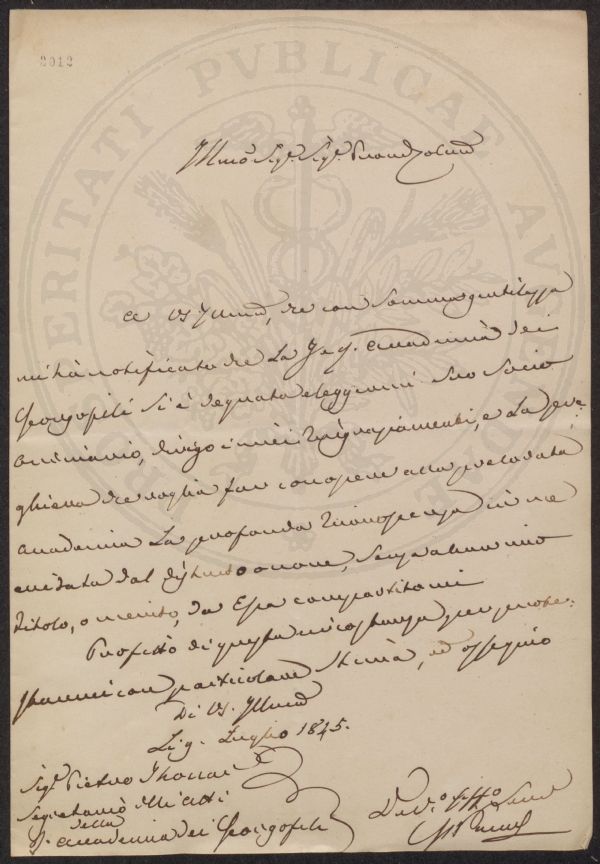 2012
PROSPERITATI PVBLICAE AVGENDAE
Illmo Sigr. Sigr.
A VS. Illma, che con somma gentilezza
mi hà notificato che La I. e R. Accademia dei
Georgofili si è degnata eleggermi suo Socio
ordinario, dirigo i miei ringraziamenti, e La pre=
ghiera che voglia far conoscere alla prelodata
Accademia La profonda riconoscenza in me
eccitata dal distinto onore, senza alcun mio
titolo, o merito, da Essa compartitomi
Profitto di questa circostanza, per prote=
starmi con particolare stima, ed ossequio
Di VS. Illma
Luglio 1845.
Sigr Pietro Thouar
Segretario delli Atti
della
R. Accademia dei Georgofili